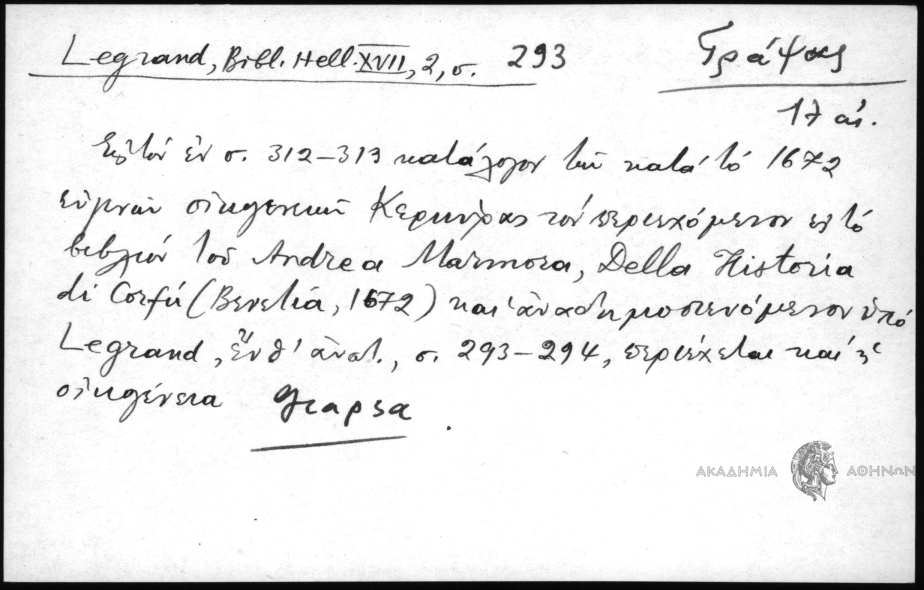 Legrand, Bibl. Hell. XVII, 2, σ. 293
Γράψας
17 αἰ.
Εἰς τὸν ἐν σ. 312-313 κατάλογον τῶν κατὰ τὸ 1672
εὐγενῶν οἰκογενειῶν Κερκύρας τὸν περιεχόμενον εἰς τὸ
βιβλίον τοῦ Andrea Marmora, Della Historia
di Corfú (Βενετία, 1672) καὶ ἀναδημοσιευόμενον ὑπὸ
Legrand, ἔνθ' ἀνωτ., σ. 293-294, περιέχεται καὶ ἡ
οἰκογένεια
ΑΚΑΔΗΜΙΑ ΑΘΗΝΩΝ